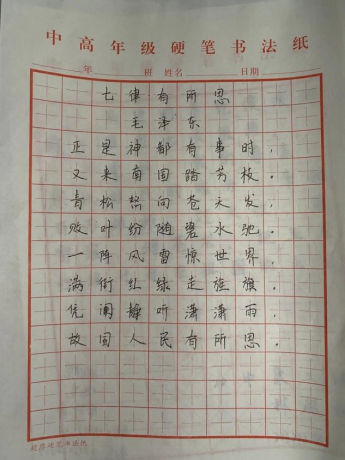 中高年级硬笔书法纸
年 班 姓名 日期
七律有所思
毛泽东
正是神都有事时，
又来南国踏芳枝。
青松怒向苍天发，
败叶纷随碧水驰。
一阵风雷惊世界，
满街红绿走旌旗。
凭阑静听潇潇雨，
故国人民有所思。